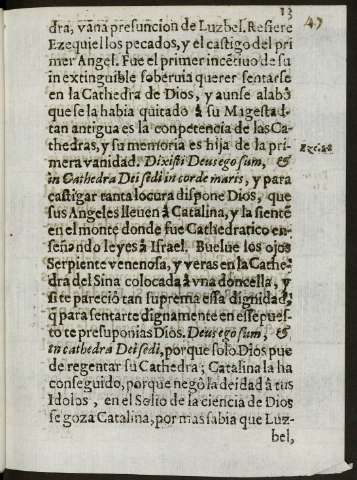 13
47
dra, vana presuncion de Luzbel. Refiere
Ezequiel los pecados, y el castigo del pri
mer Angel. Fue el primer incẽtiuo de su
in extinguible soberuia querer sentarse
en la Cathedra de Dios, y aunse alabò
que se la habia quitado à su Magestad.
tan antigua es la conpetencia de las Ca-
thedras, y su memoria es hija de la pri-
mera vanidad. Dixisti Deus ego sum, &
in Cathedra Dei sedi in corde maris, y para
castigar tanta locura dispone Dios, que
sus Angeles lleuen à Catalina, y la sientẽ
en el monte donde fue Cathedratico en-
señando leyes à Israel. Buelue los ojos
Serpiente venenosa, y veras en la Cathe
dra del Sina colocada à vna doncella, y
si te pareciò tan suprema essa dignidad,
q̃ para sentarte dignamente en esse pues-
to te presuponias Dios. Deus ego sum, &
in cathedra Dei sedi, porque solo Dios pue
de regentar su Cathedra; Catalina la ha
conseguido, porque negò la deidad à tus
Idolos, en el Solio de la ciencia de Dios
se goza Catalina, por mas sabia que Luz-
bel,